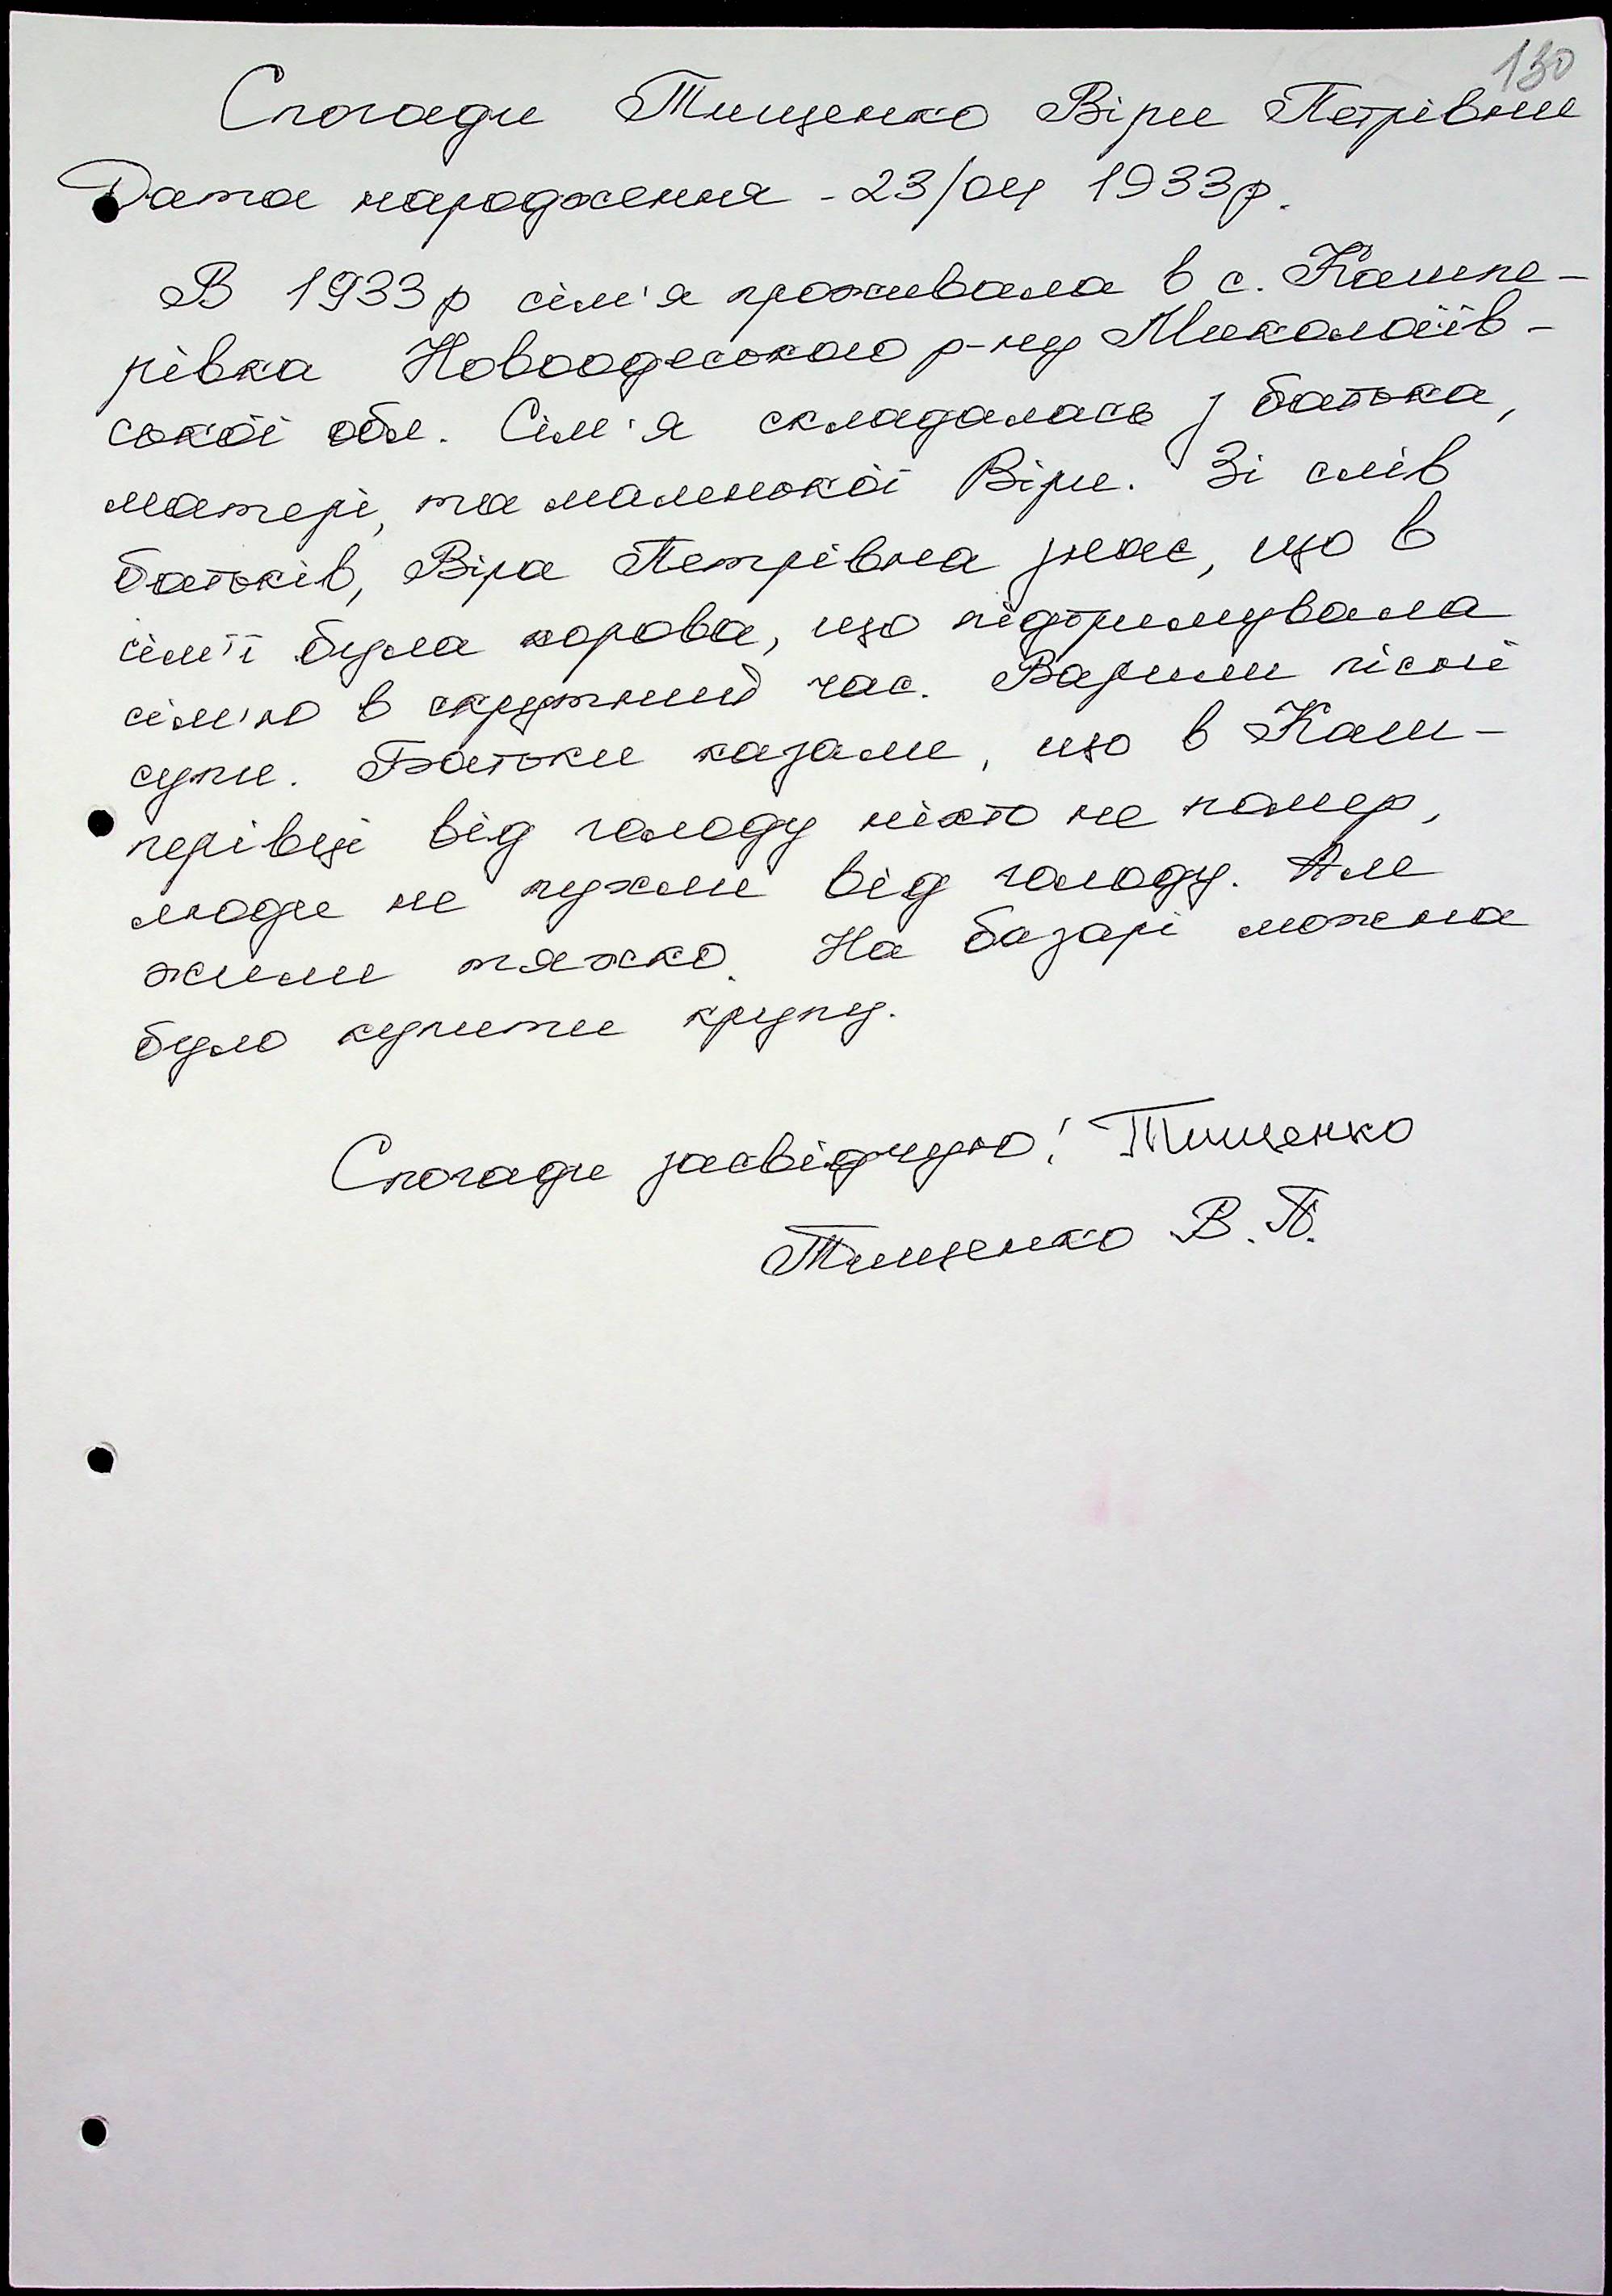 130
Спогади Тищенко Віри Петрівни
Дата народження - 23/04 1933р.
В 1933р сім'я проживала в с. Кашпе-
рівка Новоодеського р-ну Миколаїв-
ської обл. Сім'я складалась з батька,
матері, та маленької Віри. Зі слів
батьків, Віра Петрівна знає, що в
сім'ї була корова, що підтримувала
сім'ю в скрутний час. Варили пісні
супи. Батьки казали, що в Каш-
перівці від голоду ніхто не помер,
люди не пухли від голоду. Але
жили тяжко. На базарі можна
було купити крупу.
Спогади засвідчую! Тищенко
Тищенко В. П.